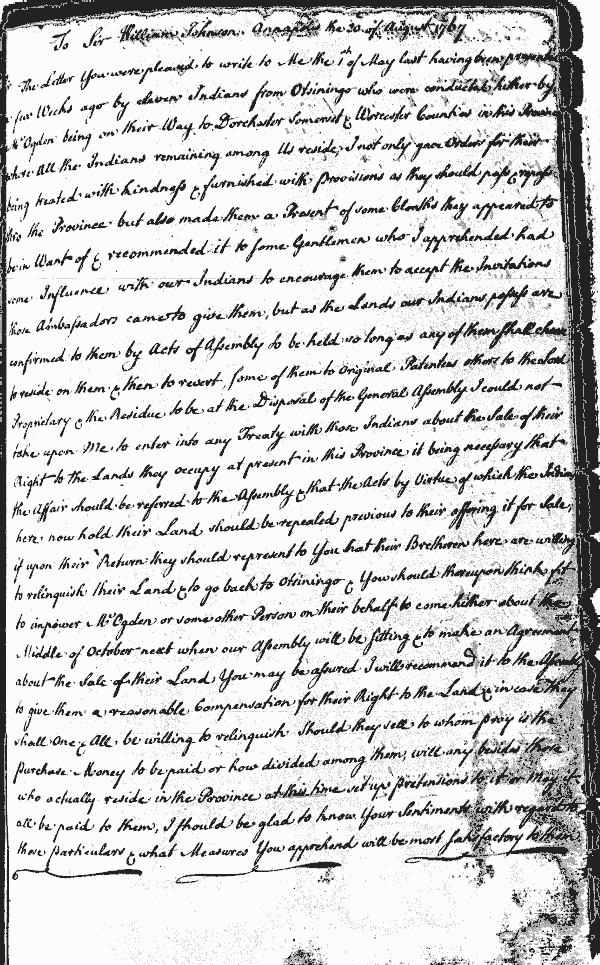 To Sir William Johnson. Annapolis the 30 of August 1767
The Letter You were pleased to write to Me the 1st of May last having been
few Weeks ago by eleven Indians from Otsiningo who were conducted hither by
Mr Ogden being on their Way to Dorchester Somerset & Worcester Counties in this Province
where All the Indians remaining among Us reside, I not only gave Orders for their
being treated with kindness & furnished with Provisions as they should pass & repass
thro the Province but also made them a Present of some Cloaths they appeared to
be in Want of & recommended it to some Gentlemen who I apprehended had
some Influence with our Indians to encourage them to accept the Invitations
those Ambassadors came to give them, but as the Lands our Indians possess are
confirmed to them by Acts of Assembly to be held so long as any of them shall chuse
to reside on them & then to revert, some of them to Original Patentees others to the Lord
Proprietary & the Residue to be at the Disposal of the General Assembly I could not
take upon Me to enter into any Treaty with those Indians about the Sale of their
Right to the Lands they occupy at present in this Province it being necessary that
the Affair should be referred to the Assembly & that the Acts by Virtue of which the Indians
here now hold their Land should be repealed previous to their offering it for Sale,
if upon their Return they should represent to You that their Bretheren here are willing
to relinquish their Land & to go back to Otsiningo & You should thereupon think fit
to impower Mr Ogden or some other Person on their behalf to come hither about the
Middle of October next when our Assembly will be sitting & to make an Agreement
about the Sale of their Land You may be assured I will recommend it to the Assembly
to give them a reasonable Compensation for their Right to the Land & in case they
shall One & All be willing to relinquish Should they sell to whom pray is the
Purchase Money to be paid or how divided among them, will any besides those
who actually reside in the Province at this time set up Pretensions to it or may it
all be paid to them, I should be glad to know Your Sentiments with regard to
those particulars & what Measures You apprehend will be most satisfactory to them